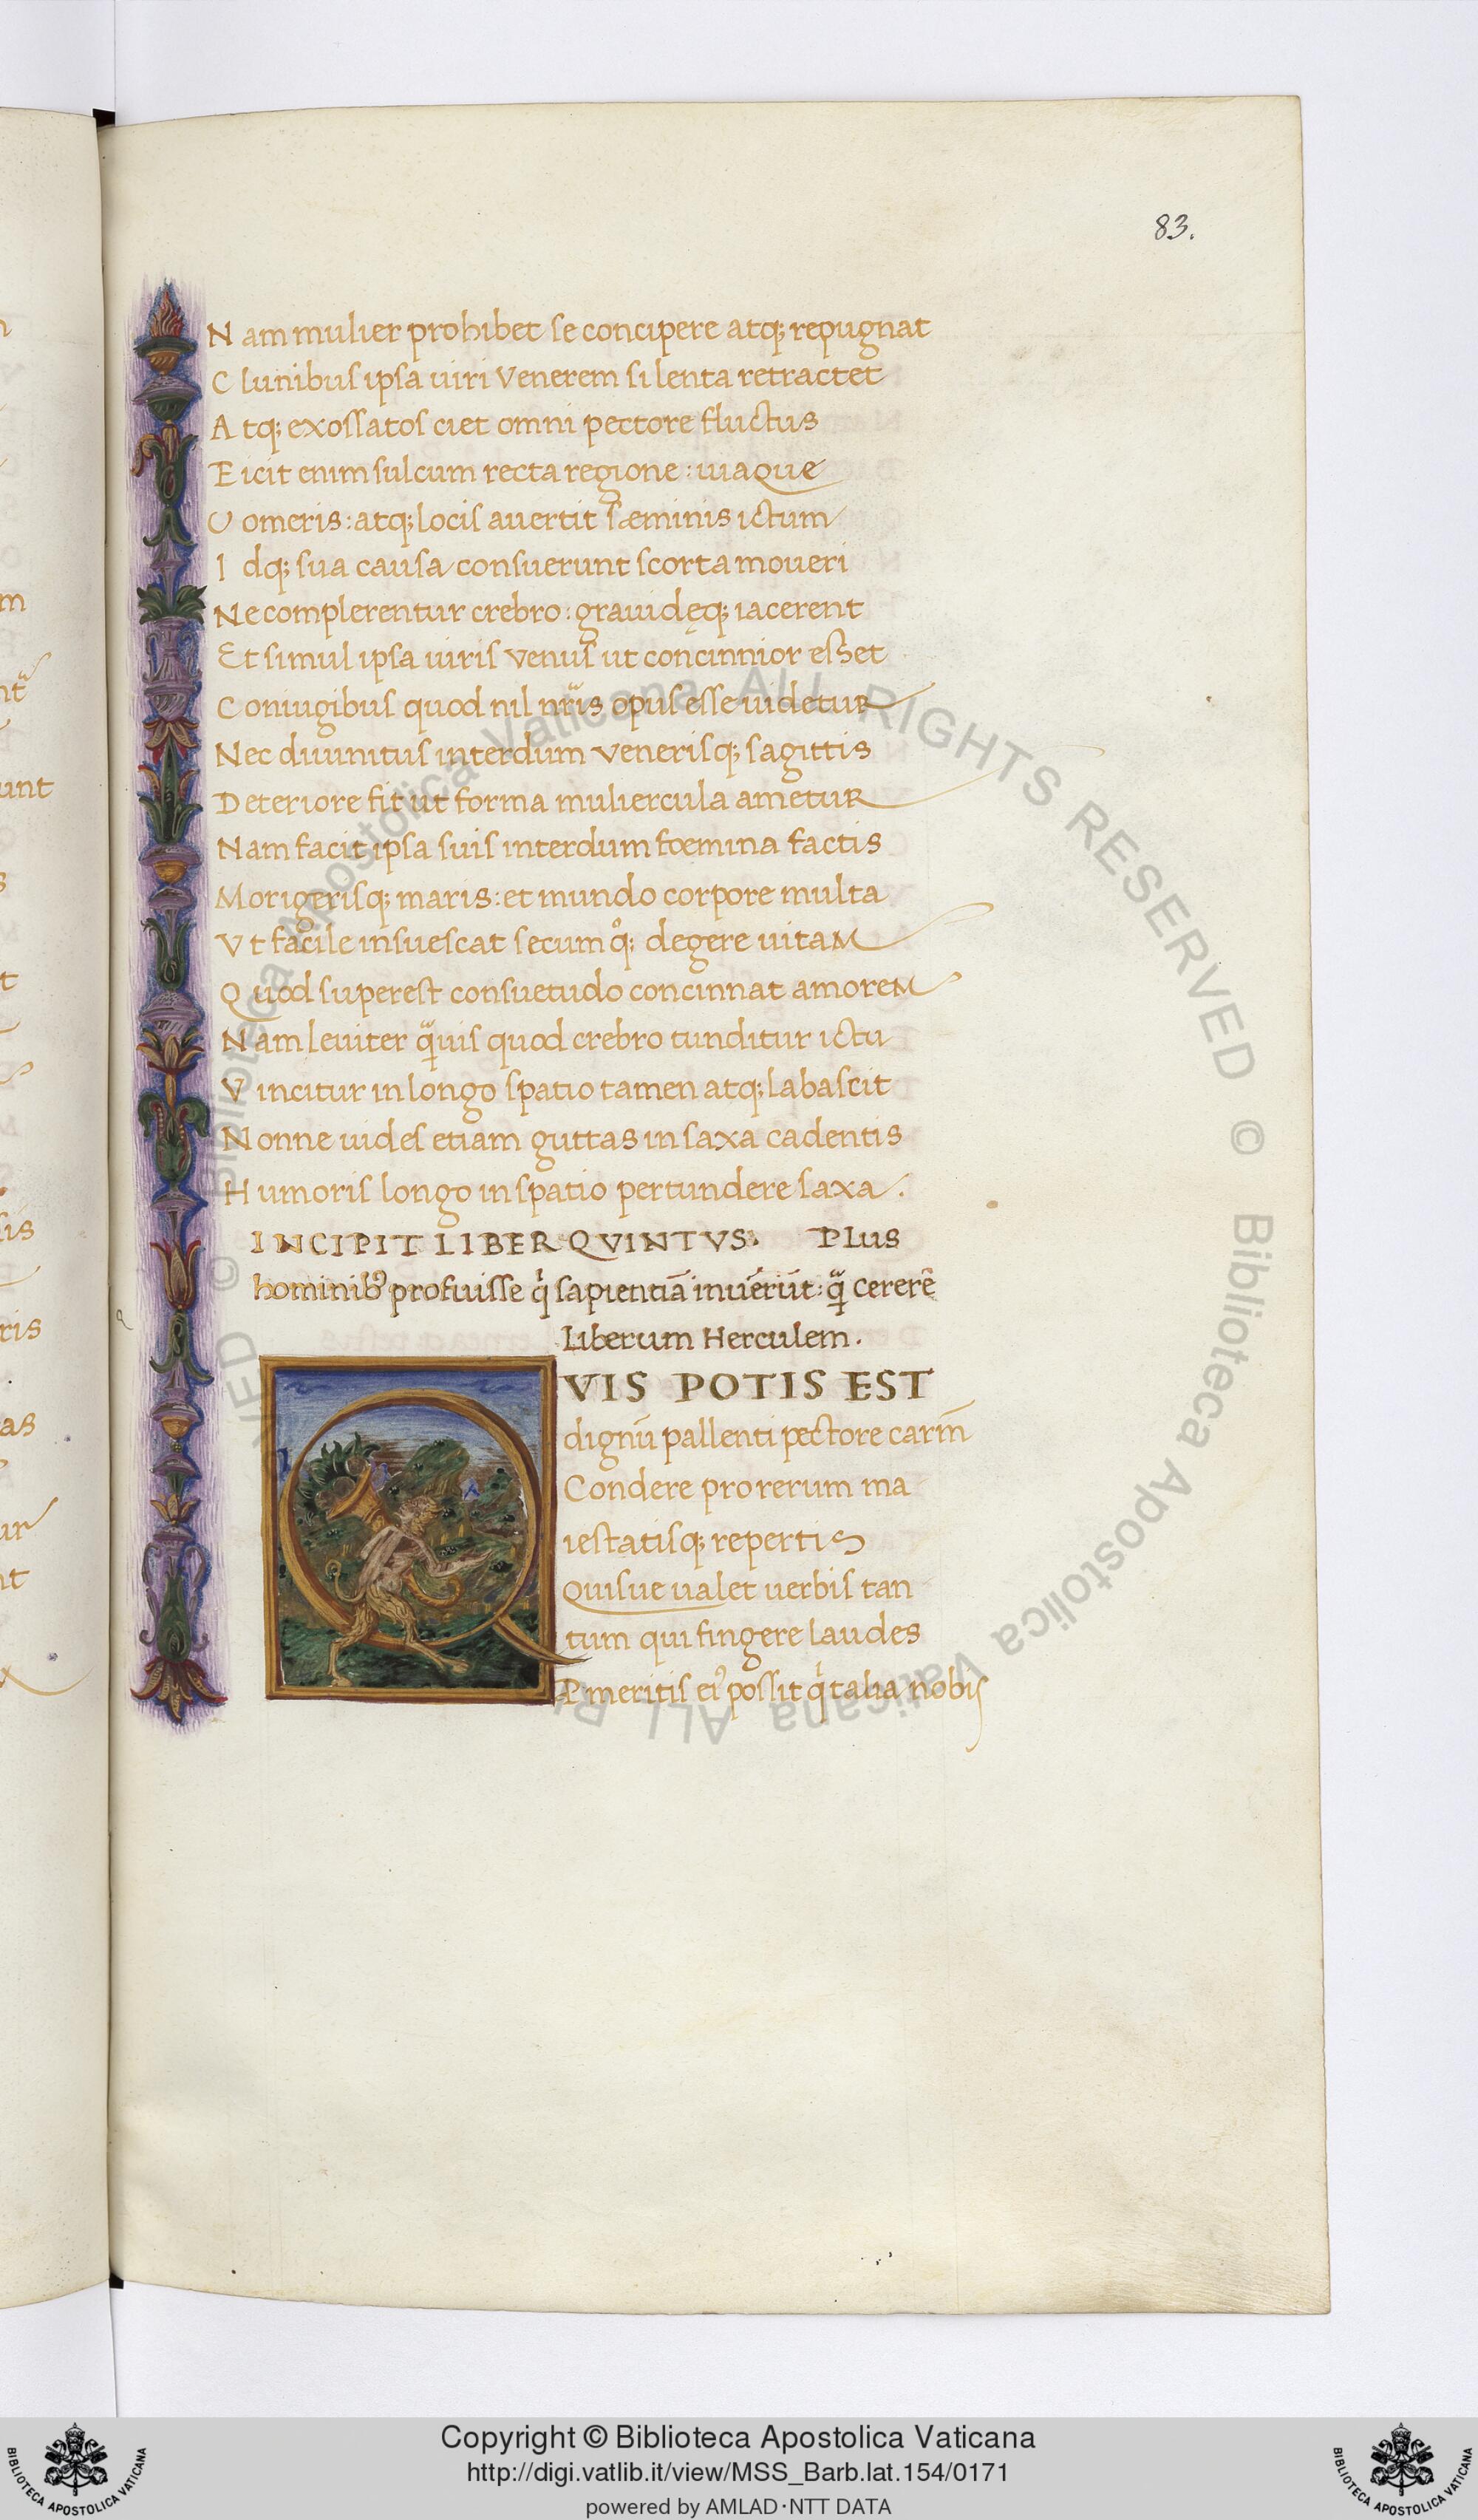 83.
Nam mulier prohibet se concipere atq; repugnat
Clunibus ipsa uiri Venerem si lenta retractet
Atq; exossatos ciet omni pectore fluctus
Eicit enim sulcum recta regione: uiaque
Uomeris: atq; locis auertit sæminis ictum
Idq; sua causa consuerunt scorta moueri
Ne complerentur crebro: grauidęq; iacerent
Et simul ipsa uiris Venus ut concinnior esset
Coniugibus quod nil nr̃is opus esse uidetur
Nec diuinitus interdum Venerisq; sagittis
Deteriore fit ut forma muliercula ametur
Nam facit ipsa suis interdum foemina factis
Morigerisq; maris: et mundo corpore multa
Vt facile insuescat secum qͦ; degere uitam
Quod superest consuetudo concinnat amorem
Nam leuiter qᷓuis quod crebro tunditur ictu
Vincitur in longo spatio tamen atq; labascit
Nonne uides etiam guttas in saxa cadentis
Humoris longo in spatio pertundere saxa.
INCIPIT LIBER QVINTVS. Plus
hominibꝰ profuisse qͥ sapientiā inuēr̄ūt: qᷓ cererē
Liberum Herculem.
VIS POTIS EST
dignū pallenti pectore carm̄
Condere pro rerum ma
iestatisq; repertis
Quisue ualet uerbis tan
tum qui fingere laudes
P meritis eiꝰ possit qͥ talia nobis
Copyright © Biblioteca Apostolica Vaticana
http://digi.vatlib.it/view/MSS_Barb.lat.154/0171
powered by AMLAD·NTT DATA
BIBLIOTECA APOSTOLICA VATICANA
BIBLIOTECA APOSTOLICA VATICANA
© Biblioteca Apostolica Vaticana ALL RIGHTS RESERVED © Biblioteca Apostolica Vaticana ALL RIGHTS RESERVED